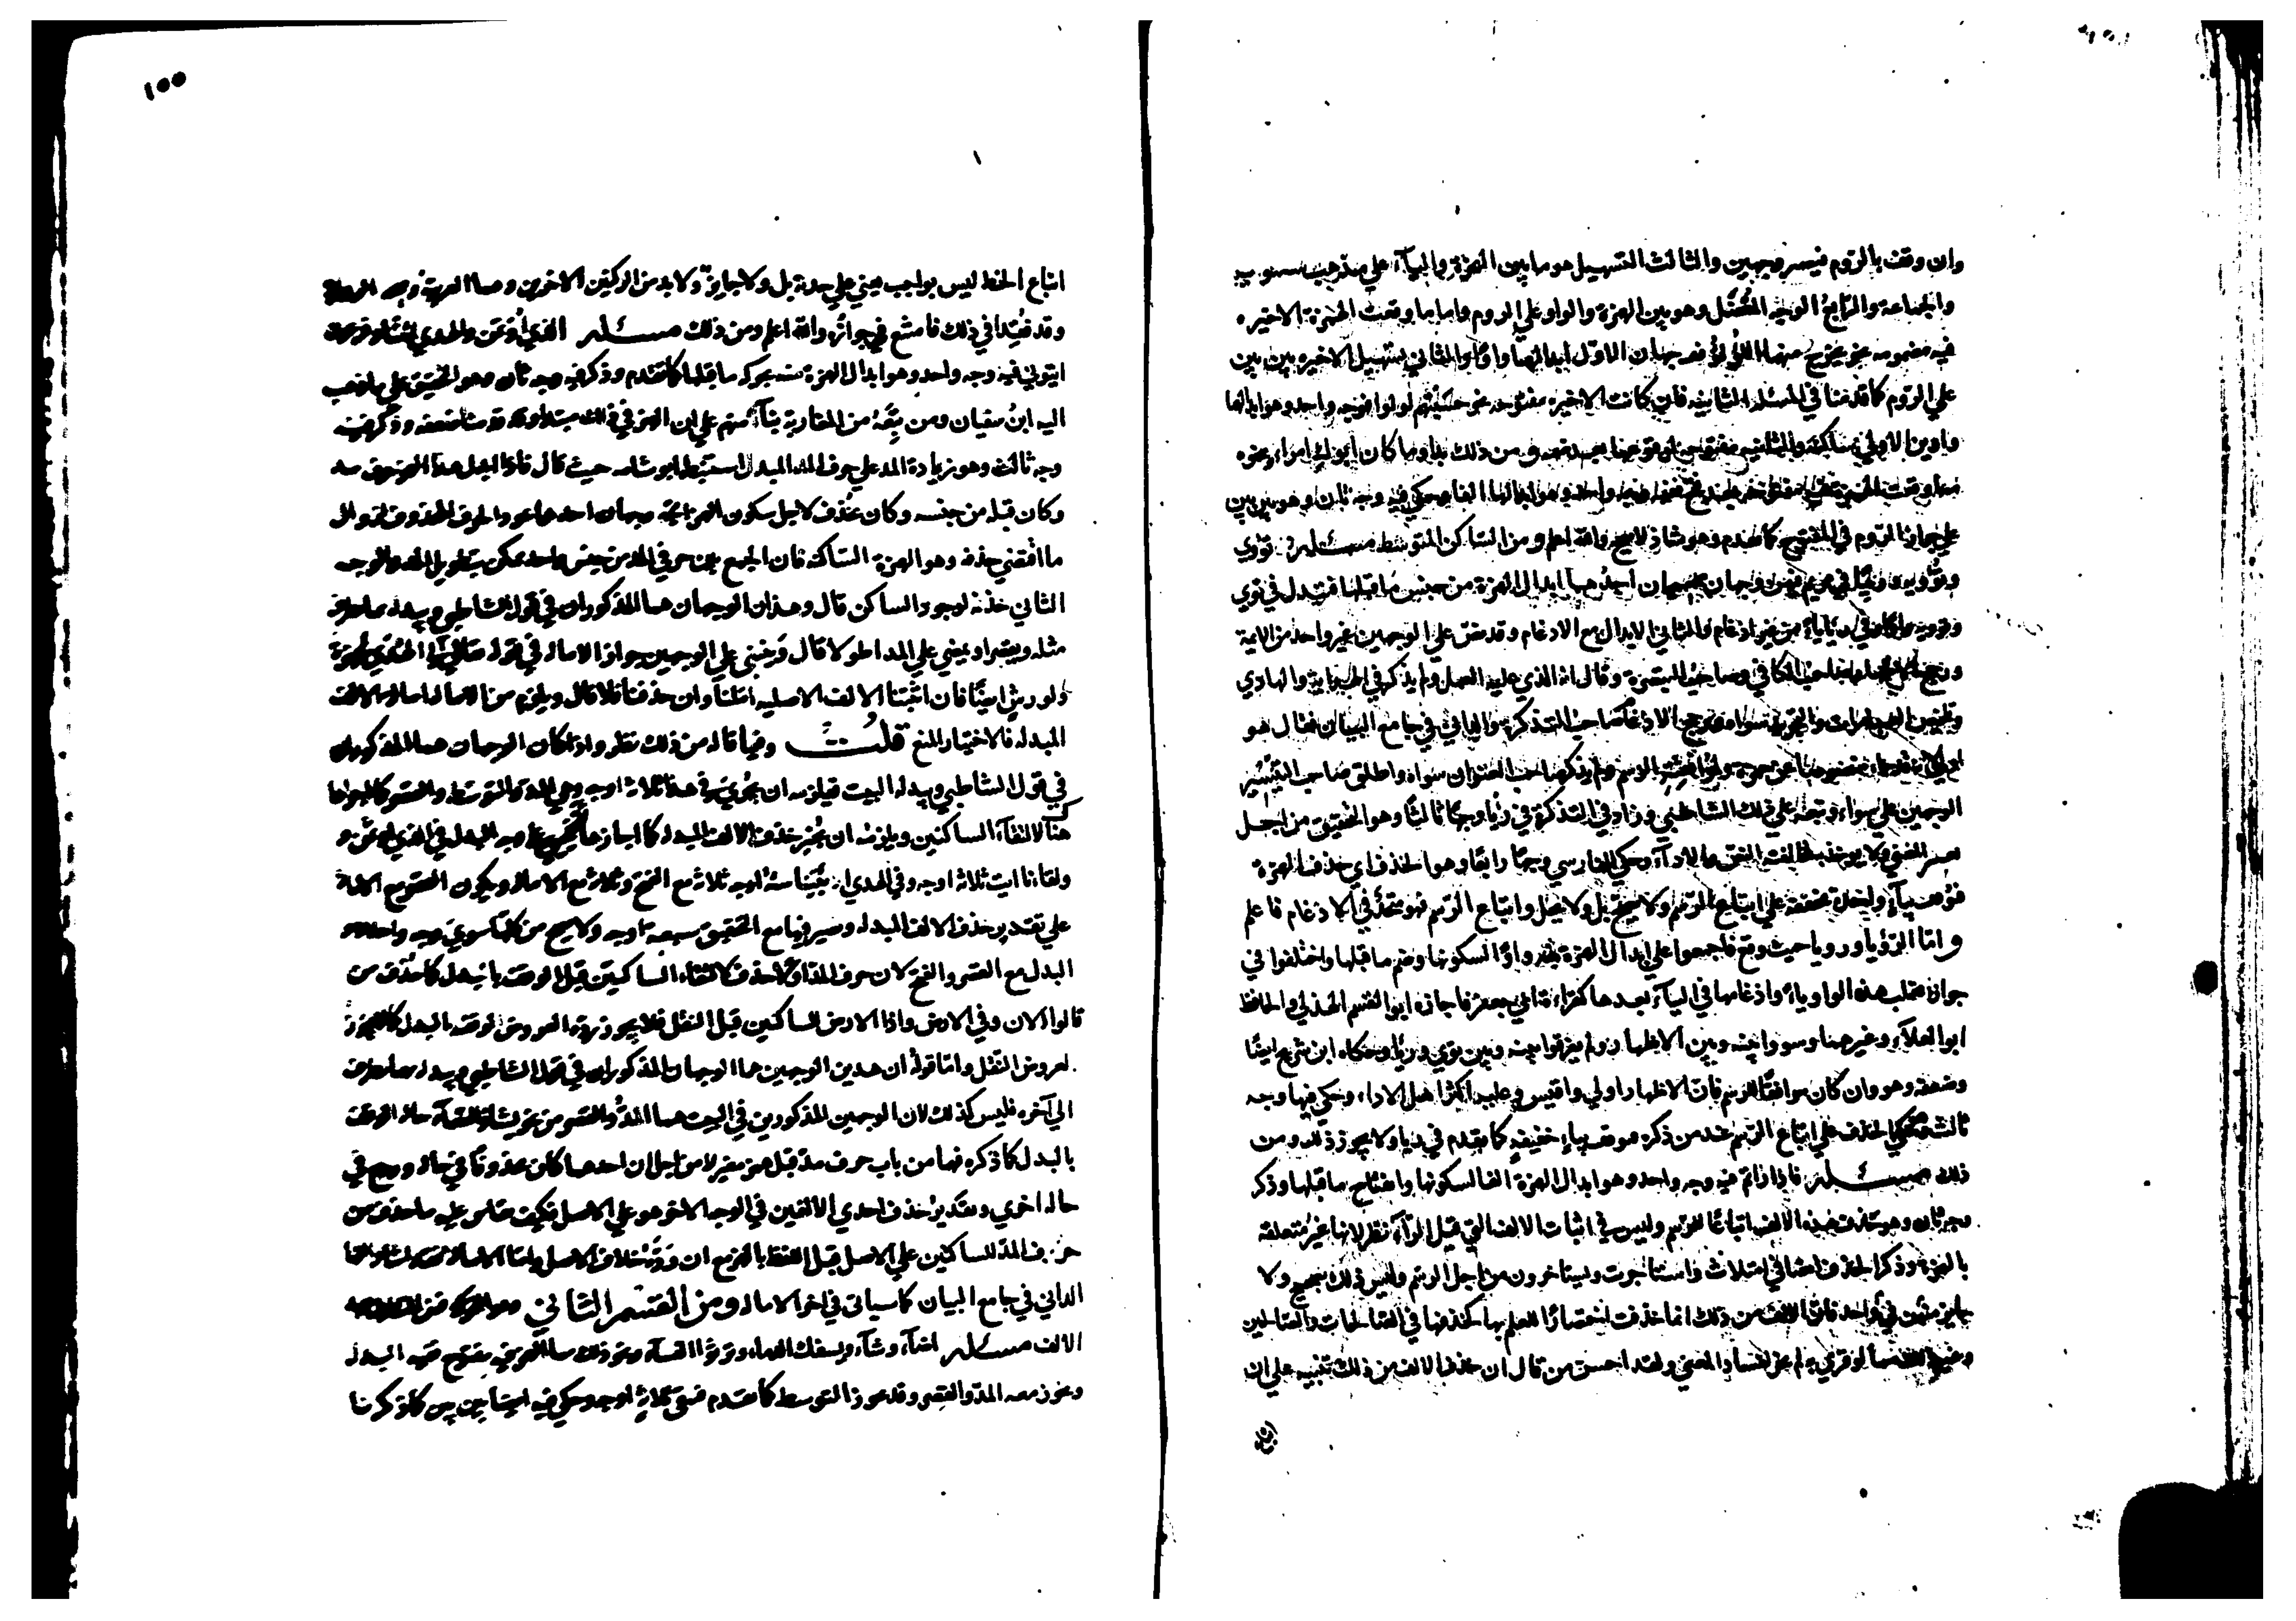 وان وقف بالروم فيصير وجهين والثالث التسهيل هو ما بين الهمزة والياء علي مذهب سيبويه
والجماعة والرابع الوجه المعضل وهو بين الهمزة والواو علي الروم واما ما وقعت الهمزة الاخيرة
فيه مضمومة نحو يخرج منهما اللؤلؤ فوجهان الاول ابدالهما واوا والثاني تسهيل الاخيره بين بين
علي الروم كما قدمنا في المسئلة الثانيه فان كانت الاخيره مفتوحه نحو حسبتهم لؤلؤا فوجه واحد وهو ابدالها
واوين الاولي ساكنة والثانيه مفتوحه ومن ذلك بدا وما كان ابوك امرا ونحوه
مما وقعت الهمزة فيه وجه واحد وهو ابدالها الفا وحكي فيه وجه ثان وهو بين بين
علي جواز الروم في المفتوح كما تقدم وهو شاذ لا يصح والله اعلم ومن الساكن المتوسط مسئلة تؤوي
وتؤويه ورئيا في مريم فيهن وجهان صحيحان احدهما ابدال الهمزة من جنس ما قبلها فتبدل في تؤوي
وتؤويه واوا وفي رئيا ياء من غير ادغام والثاني الابدال مع الادغام وقد نص علي الوجهين غير واحد من الايمة
ورجح الاظهار صاحب الكافي وصاحب التبصرة وقال انه الذي عليه العمل ولم يذكر في الهداية والهادي
وتلخيص العبارات والتجريد سواه ورجح الادغام صاحب التذكرة والداني في جامع البيان فقال هو
اولي لانه قد جاء منصوصا عن حمزة ولموافقة الرسم ولم يذكر صاحب العنوان سواه واطلق صاحب التيسير
الوجهين علي سواء وتبعه علي ذلك الشاطبي وزاد في التذكرة في رئيا وجها ثالثا وهو التحقيق من اجل
تغير المعني ولا يؤخذ به لمخالفته النص والاداء وحكي الفارسي وجها رابعا وهو الحذف اي حذف الهمزة
فيوقف بياء واحدة مخففة علي اتباع الرسم ولا يصح بل ولا يحل واتباع الرسم فهو متحد في الادغام فاعلم
واما الرؤيا ورويا حيث وقع فاجمعوا علي ابدال الهمزة منه واوا لسكونها وضم ما قبلها واختلفوا في
جواز قلب هذه الواو ياء وادغامها في الياء بعدها كقراءة ابي جعفر فاجازه ابو القسم الهذلي والحافظ
ابو العلاء وغيرهما وسووا بينه وبين الاظهار ولم يفرقوا بينه وبين تؤوي ورئيا وحكاه ابن شريح ايضا
وضعفه وهو وان كان موافقا للرسم فان الاظهار اولي واقيس وعليه اكثر اهل الاداء وحكي فيها وجه
ثالث الحذف علي اتباع الرسم عند من ذكره فيوقف بياء خفيفة كما تقدم في رئيا ولا يجوز ذلك ومن
ذلك مسئلة فادارأتم فيه وجه واحد وهو ابدال الهمزة الفا لسكونها وانفتاح ما قبلها وذكر
وجه ثان وهو حذف هذه الالف اتباعا للرسم وليس في اثبات الالف التي قبل الراء نظر لانها غير متعلقة
بالهمزة وذكر الحذف ايضا في امتلات واستاجرت ويستاخرون من اجل الرسم وليس ذلك بصحيح ولا
جايز منهن في واحد فان الالف من ذلك انما حذفت اختصارا للعلم بها كحذفها في الصالحات والصالحين
وغير ذلك مما لو قري به لم يجز لفساد المعني ولقد احسن من قال ان حذف الالف من ذلك تنبيه علي ان
اتباع الخط ليس بواجب يعني علي حدته بل ولا جايز ولا بد من الركنين الاخرين وهما العربية وصحة الرواية
وقد فقدا في ذلك فامتنع في جوازه والله اعلم ومن ذلك مسئلة الذي اؤتمن والهدي ائتنا وفرعون
ايتوني فيه وجه واحد وهو ابدال الهمزة منه بحركة ما قبلها كما تقدم وذكر فيه وجه ثان وهو التحقيق علي ما ذهب
اليه ابن سفيان ومن تبعه من المغاربة بناء منهم علي ان الهمز في ذلك مبتدا وقد قدمنا ضعفه وذكر فيه
وجه ثالث وهو زيادة المد علي حرف المد المبدل استنبطه ابو شامه حيث قال فاذا ابدل هذا الهمز حرف مد
وكان قبله من جنسه وكان يحذف لاجل سكون الهمزة اتجه وجهان احدهما عود الحرف المحذوف لزوال
ما اقتضي حذفه وهو الهمزة الساكنة فان الجمع بين حرفي المد من جنس واحد ممكن بتطويل المد والوجه
الثاني حذفه لوجود الساكن قال وهذان الوجهان هما المذكوران في قول الشاطبي ويبدله مهما تطرف
مثله ويقصر او يمضي علي المد اطولا قال وينبني علي الوجهين جواز الامالة في قوله تعالي الي الهدي ايتنا لحمزة
ولورش ايضا فان اثبتنا الالف الاصليه املنا وان حذفنا فلا قال ويلزم من الامالة امالة الالف
المبدله فالاختيار المنع قلت وفيما قاله من ذلك نظر واذا كان الوجهان هما المذكوران
في قول الشاطبي ويبدله البيت فيلزمه ان يجري في هذا ثلاثة اوجه وهي المد والتوسط والقصر كما اجراها
هناك لالتقاء الساكنين ويلزمه ان يجيز حذف الالف المبدله كما اجازها فيجي علي وجه البدل في الذي اؤتمن و
ولقاءنا ائت ثلاثة اوجه وفي الهدي ائتنا ستة اوجه ثلاثة مع الفتح وثلاثة مع الامالة ويكون القصر مع الامالة
علي تقدير حذف الالف المبدله ويصير فيها مع التحقيق سبعة اوجه ولا يصح من كلها سوي وجه واحد وهو
البدل مع القصر والفتح لان حرف المد اولا حذف لالتقاء الساكنين قبل الوقف بالبدل كما حذف من
قالوا الان وفي الارض واذا الارض للساكنين قبل النقل فلا يجوز رده لعروض الوقف بالبدل كما لا يجوز
لعروض النقل واما قوله ان هذين الوجهين هما الوجهان المذكوران في قول الشاطبي ويبدله مهما تطرف
الي آخره فليس كذلك لان الوجهين المذكورين في البيت هما المد والقصر من نحو يشاء والسماء حالة الوقف
بالبدل كما ذكره فهما من باب حرف مد قبل همز مغير لا من اجل ان احدهما كان محذوفا في حالة ورجع في
حالة اخري وتقدير حذف احدي الالفين في الوجه الاخر هو علي الاصل فكيف يقاس عليه ما حذف من
حرف المد للساكنين علي الاصل قبل اللفظ بالهمز مع ان رده خلاف الاصل واما الامالة فقد اشار اليها
الداني في جامع البيان كما سياتي في اخر الامالة ومن القسم الثاني وهو المتحرك فمن المتطرف بعد
الالف مسئلة اضاء وشاء ويسفك الدماء وترثوا النساء ونحو ذلك مما الهمز فيه مفتوح فيه البدل
ويجوز معه المد والقصر وقد يجوز التوسط كما تقدم فيبقي ثلاثة اوجه وحكي فيه ايضا بين بين كما ذكرنا
١٥٥